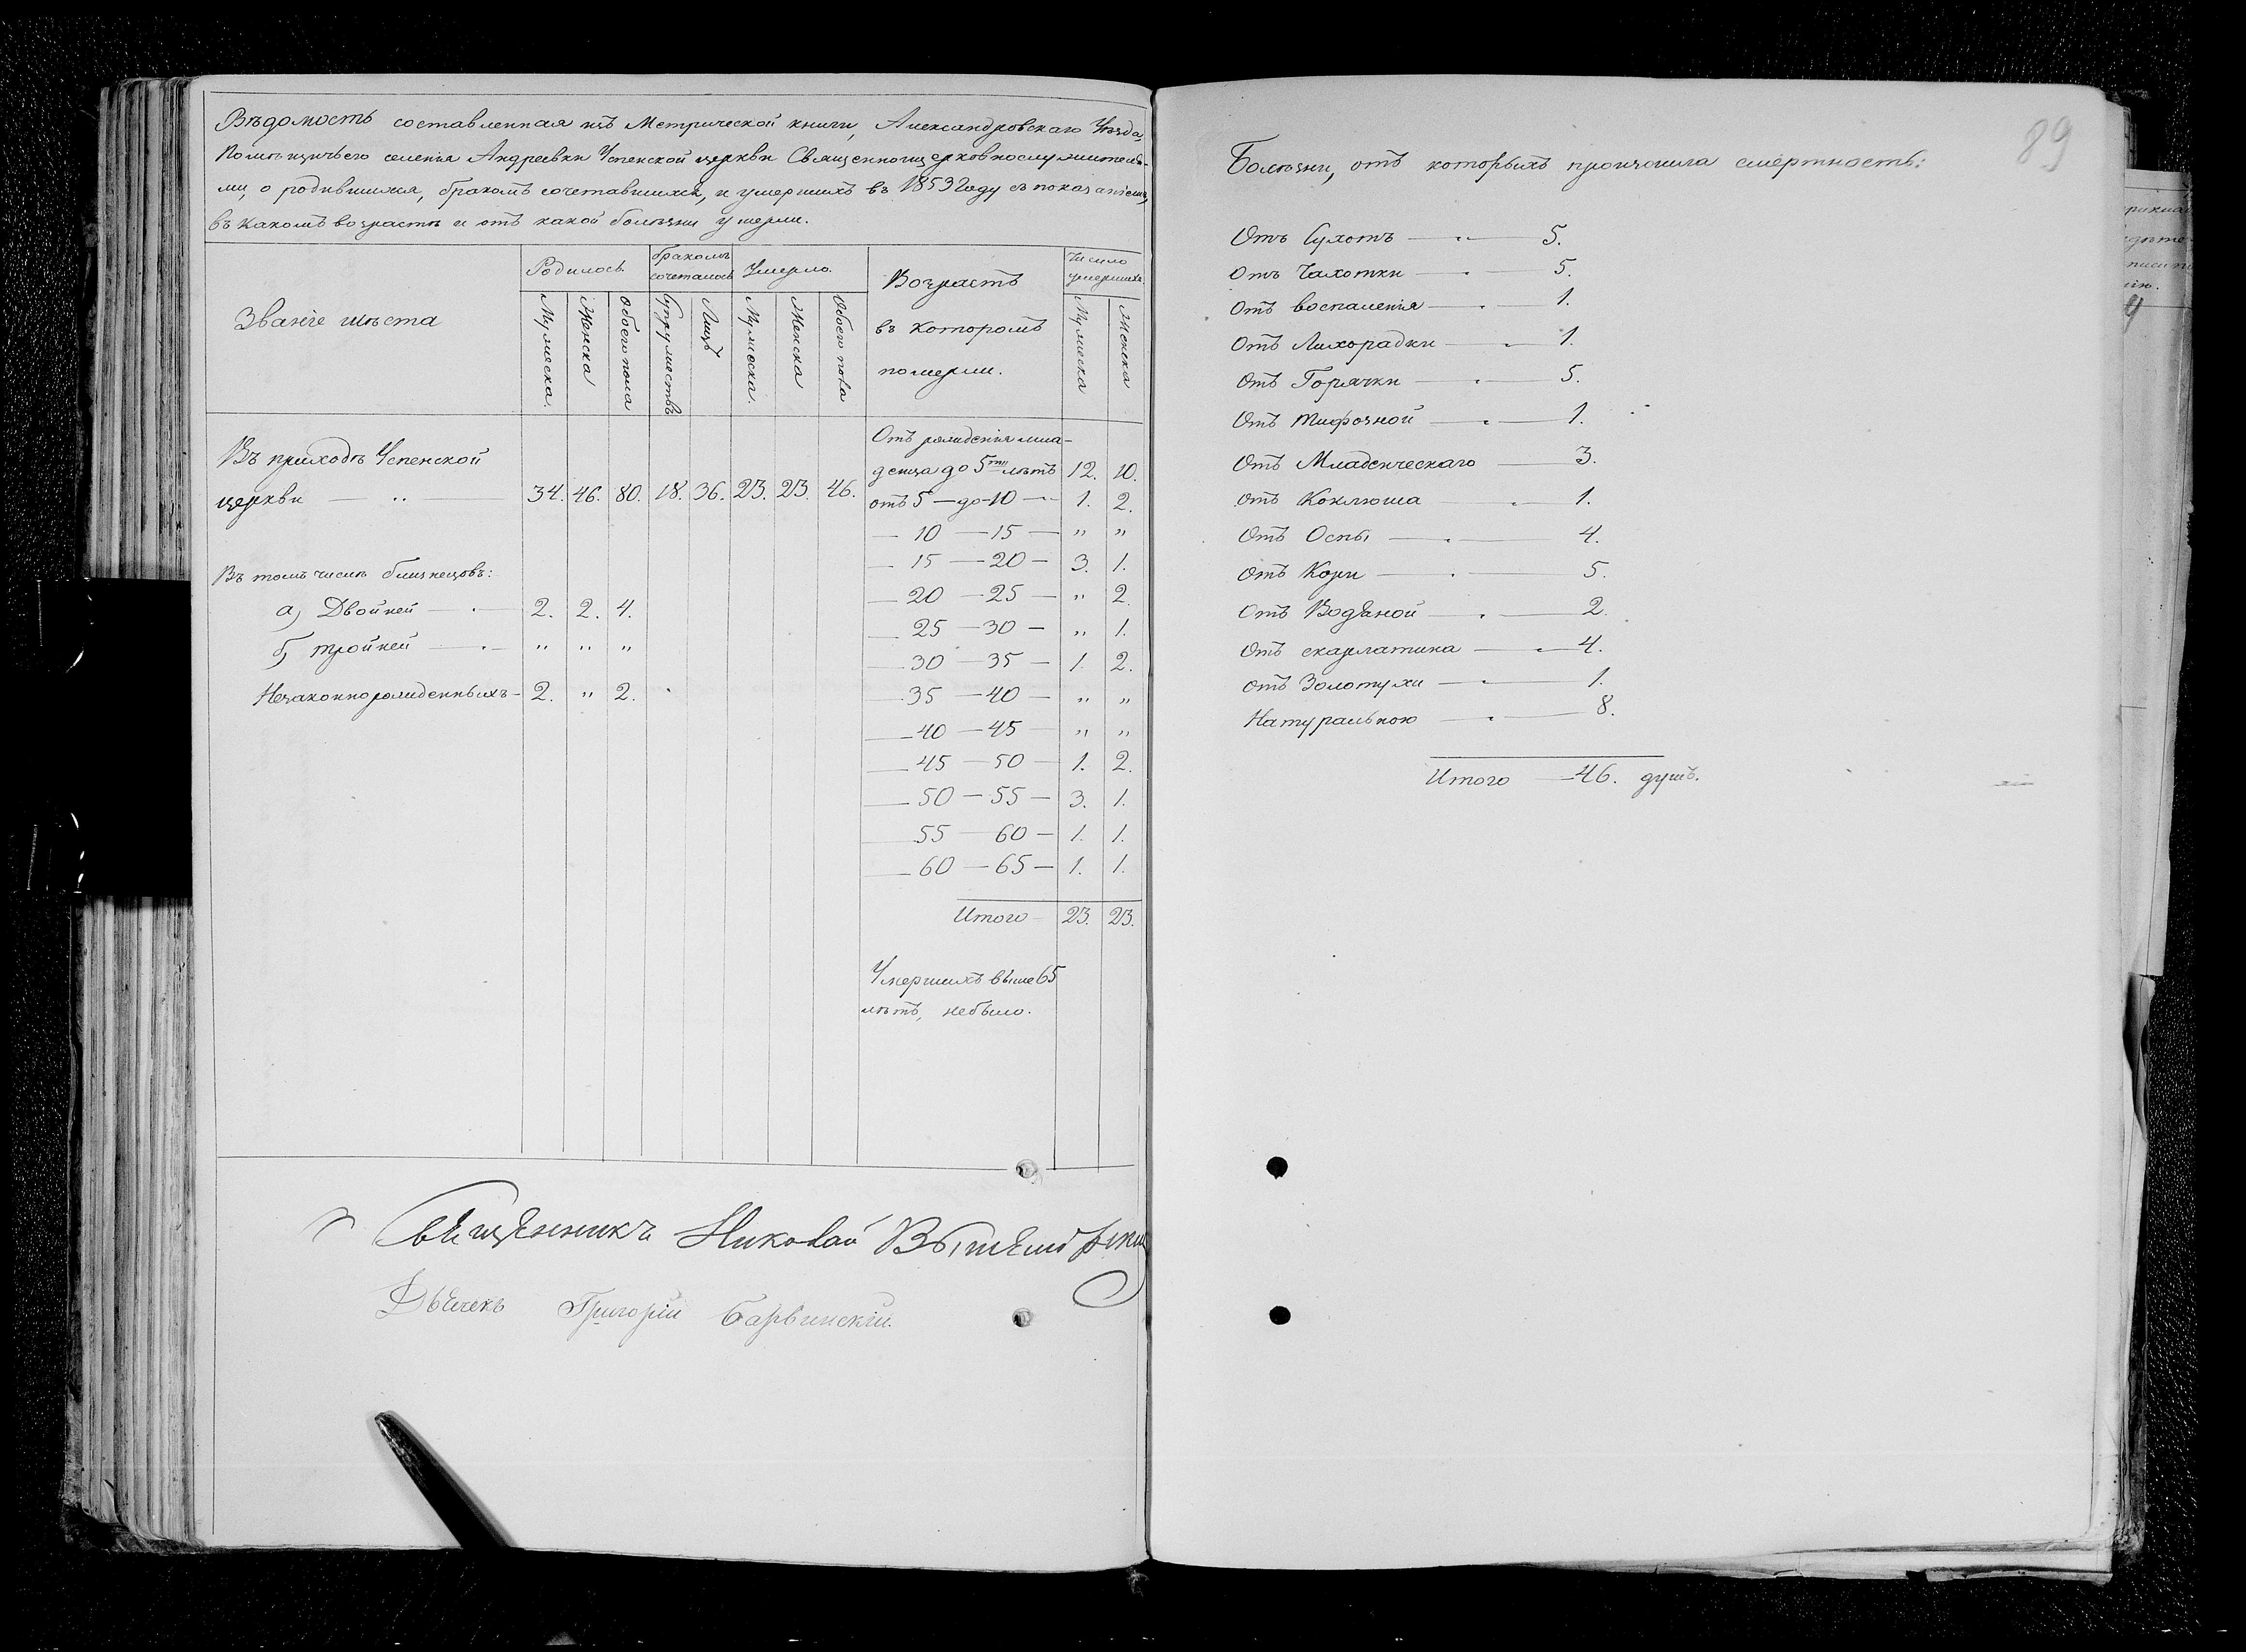 Вѣдомость составленная изъ Метрической книги, Александровскаго Уѣзда,
Помѣщичьего селенія Андреевки Успенской церкви Священноцерковнослужителя-
ми, о родившихся, бракомъ сочетавшихся, и умершихъ въ 1853 Году съ показаніемъ,
въ какомъ возрастѣ и отъ какой болѣзни умерли.
Званіе мѣста
Родилось.
бракомъ сочеталось
Умерло.
Возрастъ
въ которомъ
померли.
Число умершихъ.
Мужеска.
Женска
Обоего пола
Супружествъ
Лицъ
Мужеска.
Женска
Обоего пола
Мужеска
Женска
Въ приходѣ Успенской
церкви — „ — 34. 46. 80. 18. 36. 23. 23. 46.
Въ томъ числѣ близнецовъ:
а) Двойней — 2. 2. 4.
б) тройней — „ „ „
Незаконнорожденныхъ - 2. „ 2.
Отъ рожденія мла-
денца до 5ти лѣтъ 12. 10.
отъ 5 — до 10 — 1. 2.
— 10 — 15 — „ „
— 15 — 20 — 3. 1.
— 20 — 25 — „ 2.
— 25 — 30 — „ 1.
— 30 — 35 — 1. 2.
— 35 — 40 — „ „
— 40 — 45 — „ „
— 45 — 50 — 1. 2.
— 50 — 55 — 3. 1.
— 55 — 60 — 1. 1.
— 60 — 65 — 1. 1.
Итого — 23. 23.
Умершихъ выше 65
лѣтъ, небыло.
Священникъ Николай
Дьячекъ Григорій Барвинскій.
89
Болѣзни, отъ которыхъ произошла смертность:
Отъ Сухотъ — 5.
Отъ Чахотки — 5.
Отъ воспаленія — 1.
Отъ Лихорадки — 1.
Отъ Горячки — 5.
Отъ тифозной — 1.
Отъ Младенческаго — 3.
Отъ Коклюша — 1.
Отъ Оспы — 4.
Отъ Кори — 5.
Отъ Водяной — 2.
Отъ скарлатина — 4.
Отъ Золотухи — 1.
Натуральною — 8.
Итого — 46. душъ.